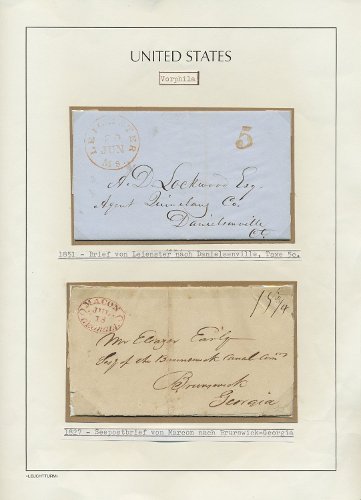 UNITED STATES
Vorphila
LEICESTER
JUN
Ms.
5
A. D. Lockwood Esq.
Agent Quinebaug Co.
Danielsonville
Ct.
1851 - Brief von Leienster nach Danielsenville, Taxe 5c.
MACON
JUL
18
GEORGIA
Mr Eleazer Early
of the Brunswick Canal
Brunswick
Georgia
1827 - Seepostbrief von Marcon nach Brunswick-Georgia
»LEUCHTTURM«